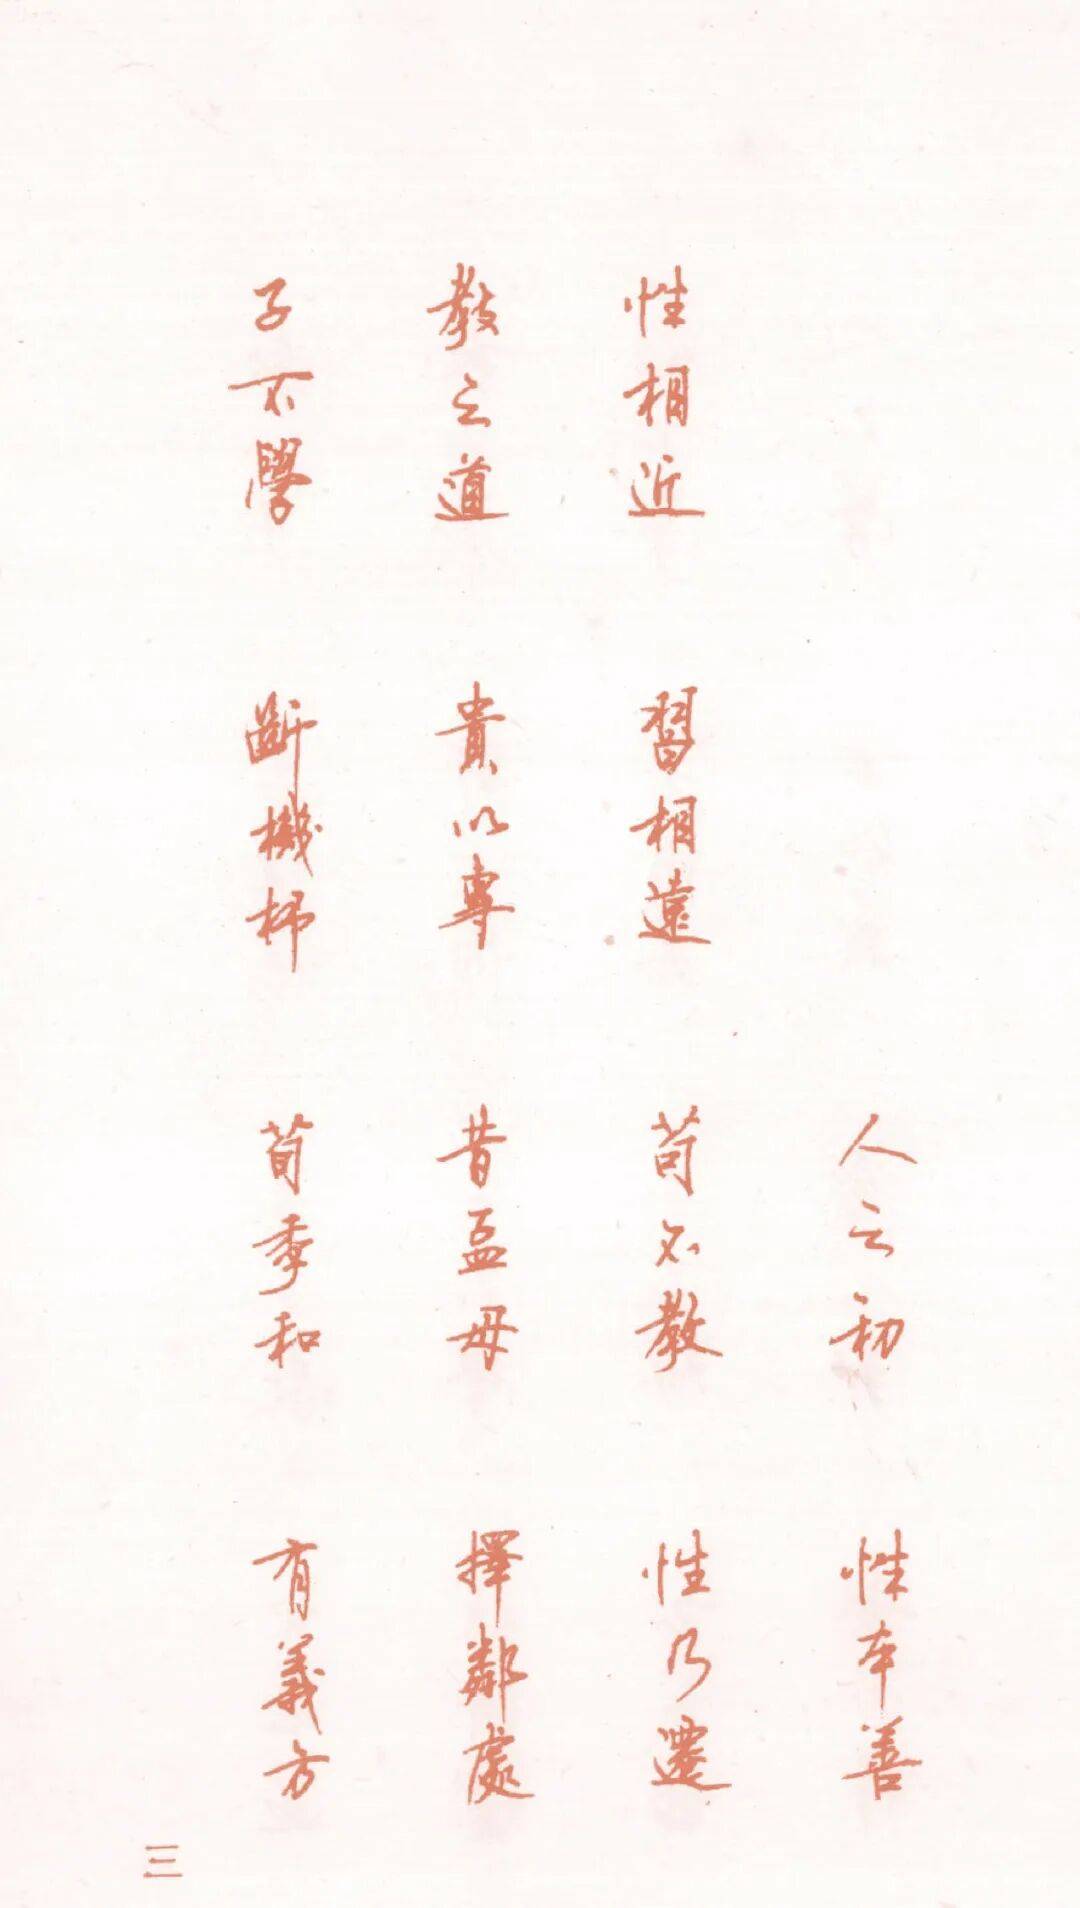 人之初 性本善
性相近 習相遠 苟不教 性乃遷
教之道 貴以專 昔孟母 擇鄰處
子不學 斷機杼 荀季和 有義方
三